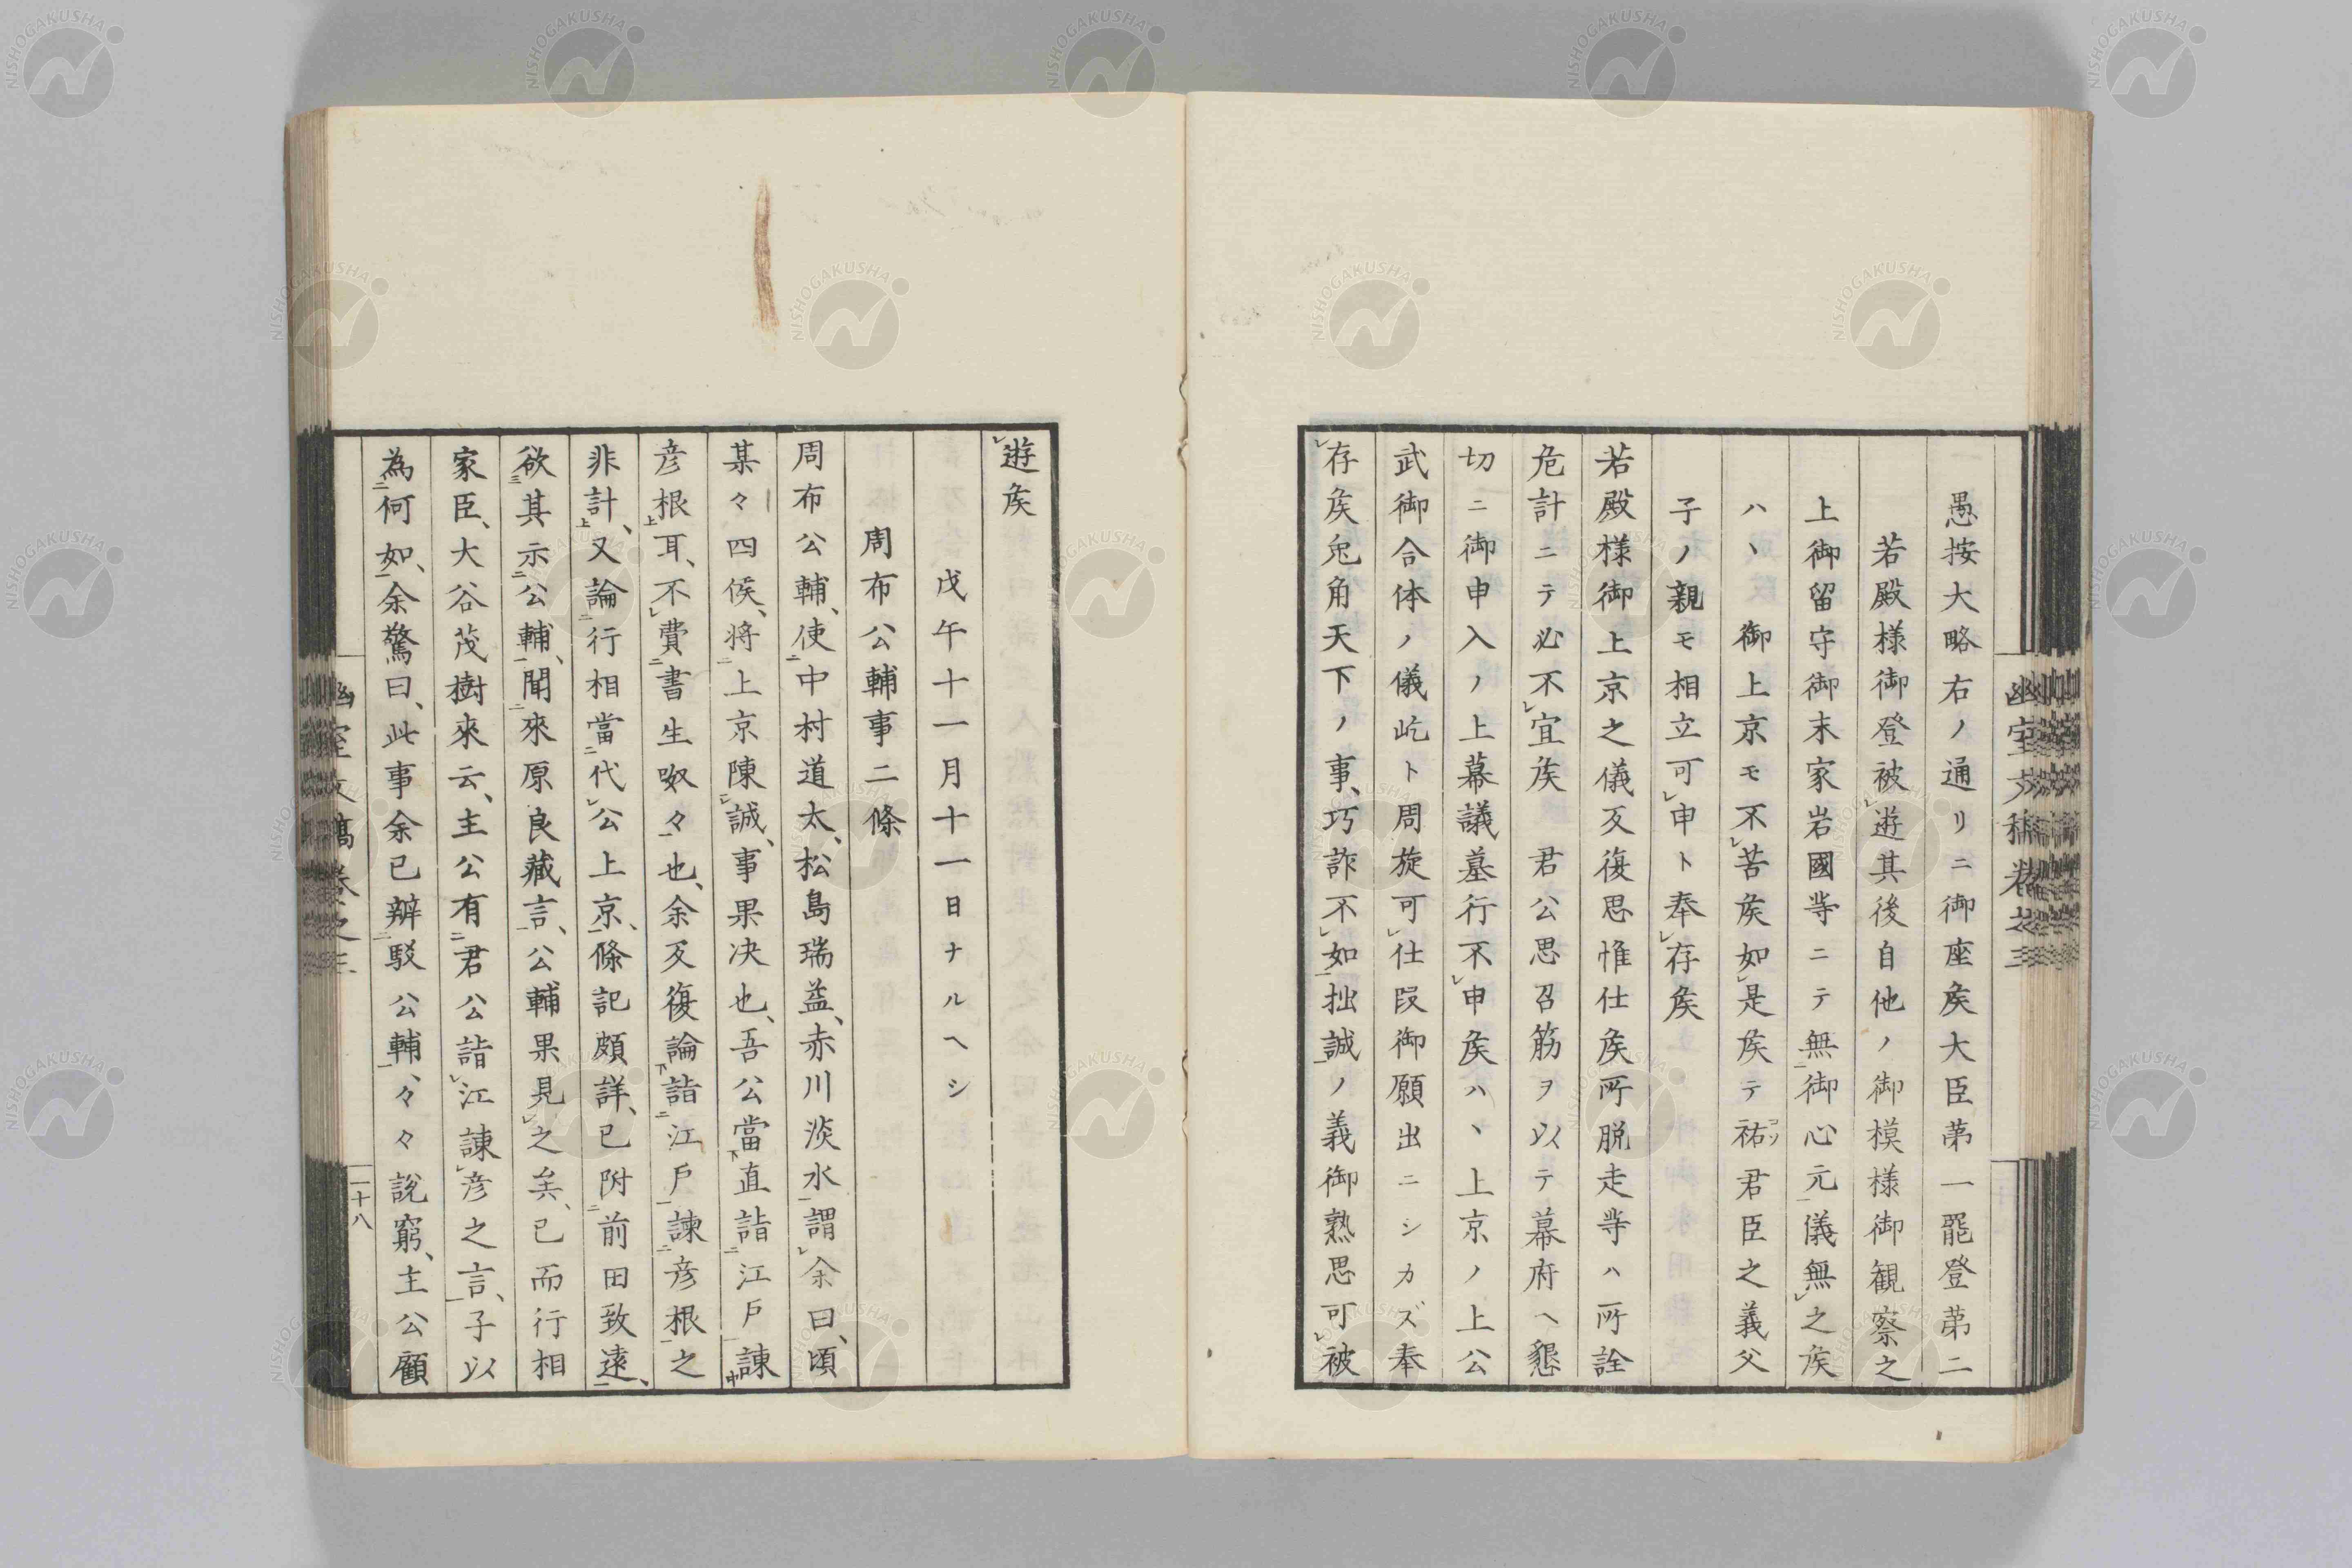 愚按大略右ノ通リニ御座矦大臣第一罷登第二
若殿様御登被遊其後自他ノ御模様御観察之
上御留守御末家岩國等ニテ無御心元儀無之矦
ハヽ御上京モ不苦矦如是矦テ祐君臣之義父
子ノ親モ相立可申ト奉存矦
若殿様御上京之儀反復思惟仕矦所脱走等ハ所詮
危計ニテ必不宜矦 君公思召筋ヲ以テ幕府ヘ懇
切ニ御申入ノ上幕議墓行不申矦ハヽ上京ノ上公
武御合体ノ儀屹ト周旋可仕段御願出ニシカズ奉
存矦兎角天下ノ事、巧詐不如拙誠ノ義御熟思可被
遊矦
戊午十一月十一日ナルヘシ
周布公輔事二條
周布公輔、使中村道太、松島瑞益、赤川淡水謂余曰、頃
某々四侯、将上京陳誠、事果决也、吾公當直詣江戸諫
彦根耳、不費書生呶々也、余反復論詣江戸諫彦根之
非計、又論行相當代公上京、條記頗詳、已附前田致遠、
欲其示公輔、聞來原良藏言、公輔果見之矣、已而行相
家臣、大谷茂樹來云、主公有君公詣江諫彦之言、子以
為何如、余驚曰、此事余已辨駁公輔、々々説窮、主公顧
幽室文稿卷之三
二十八
NISHOGAKUSHA